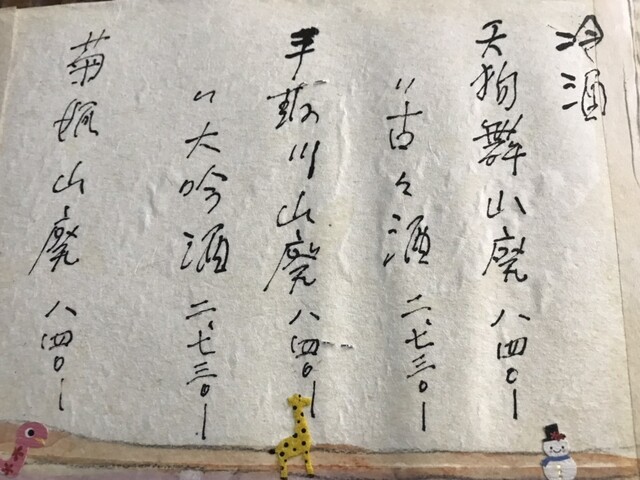 冷酒
天狗舞山廃 八四〇ー
〃古々酒 二、七三〇ー
手取川山廃 八四〇ー
〃大吟酒 二、七三〇ー
菊姫山廃 八四〇ー